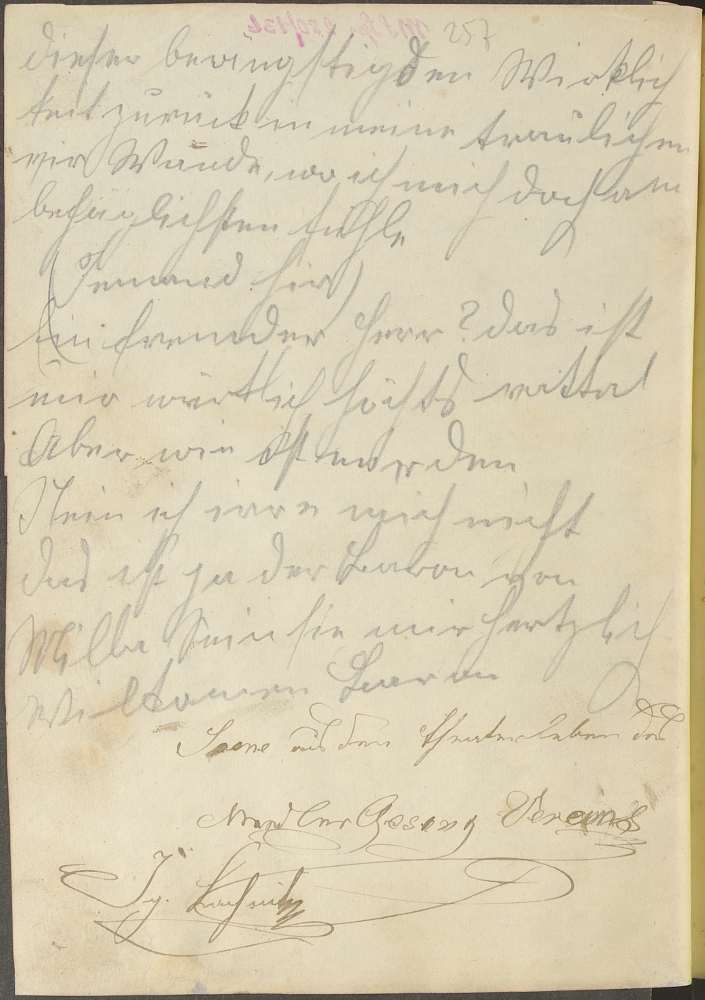 257
dieser beängstigden Wirklich
keit zurück in meine traulichen
vir Wände, wo ich mich doch am
behaglichsten fühle
(Jemand hir)
Ein fremder Herr? das ist
mir wirklich höchts
Aber wie ist mir den
Nein ich irre mich nicht
das ist ja der Baron von
Milba Sein sie mir hertzlich
Wilkomen Baron
Scene aus dem Theaterleben des
Gesang Vereins